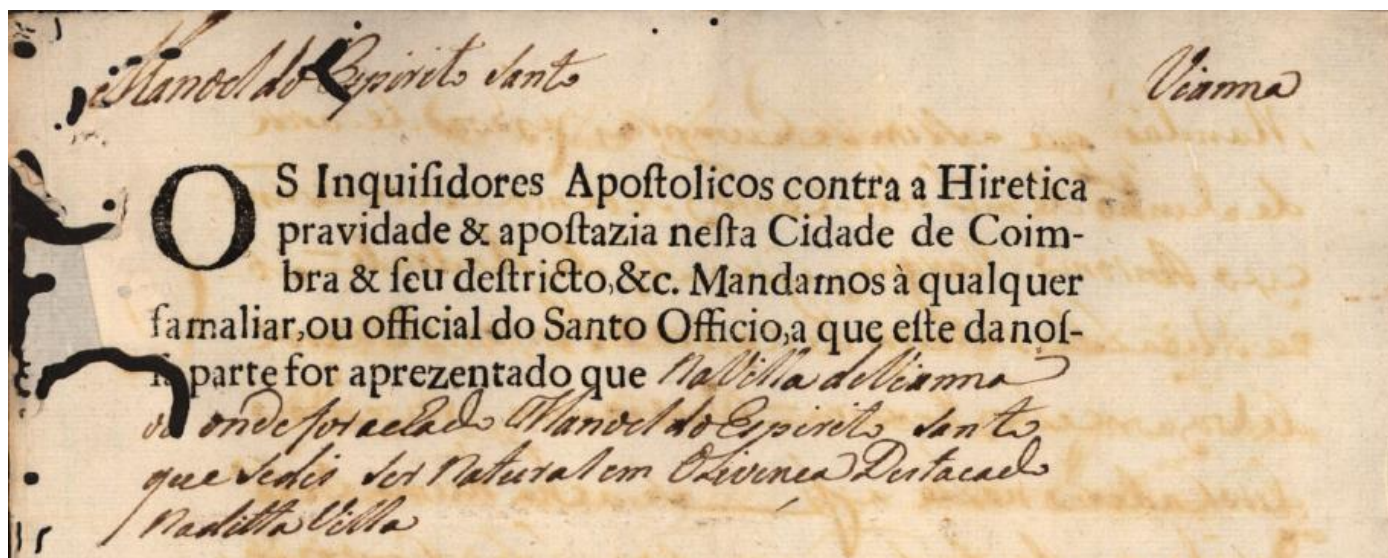 Manoel do Espirito Santo
Vianna
OS Inquiſidores Apoſtolicos contra a Hiretica
pravidade & apoſtazia neſta Cidade de Coim-
bra & ſeu deſtricto, &c. Mandamos à qualquer
famaliar, ou official do Santo Officio, a que eſte da noſ-
ſa parte for aprezentado que na Villa de Vianna
ou onde for aclado Manoel do Espirito Santo
que sedis ser natural em Olivença Destacado
na ditta Villa